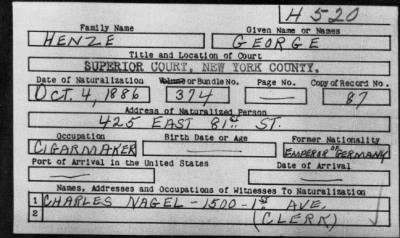 H 520
Family Name Given Name or Names
HENZE GEORGE
Title and Location of Court
SUPERIOR COURT, NEW YORK COUNTY.
Date of Naturalization Volume or Bundle No. Page No. Copy of Record No.
OCT. 4, 1886 374 — 87
Address of Naturalized Person
425 EAST 81st ST.
Occupation Birth Date or Age Former Nationality
CIGARMAKER — EMPEROR OF GERMANY
Port of Arrival in the United States Date of Arrival
— —
Names, Addresses and Occupations of Witnesses To Naturalization
1 CHARLES NAGEL - 1500 - 1st AVE.
2 (CLERK)